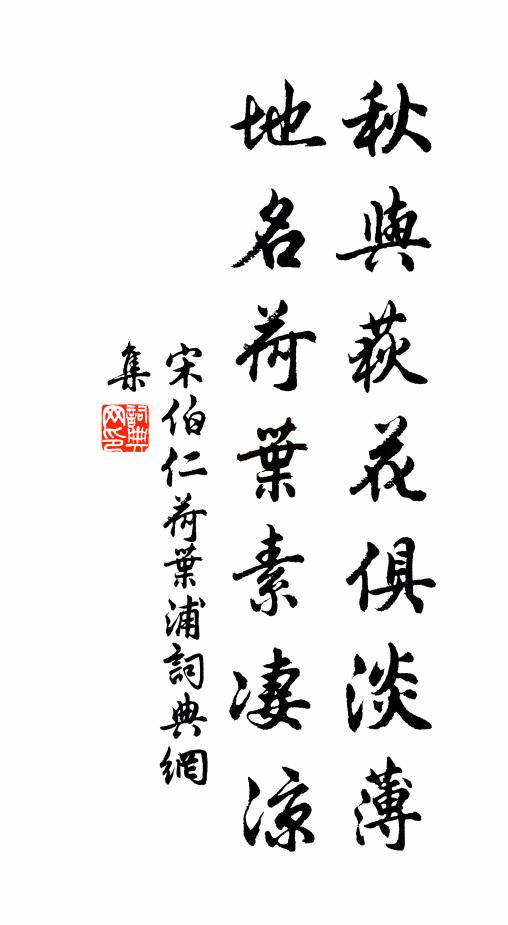 秋與荻花俱淡薄
地名荷葉素凄涼
宋伯仁荷葉浦詞典網
集
詞典
网印